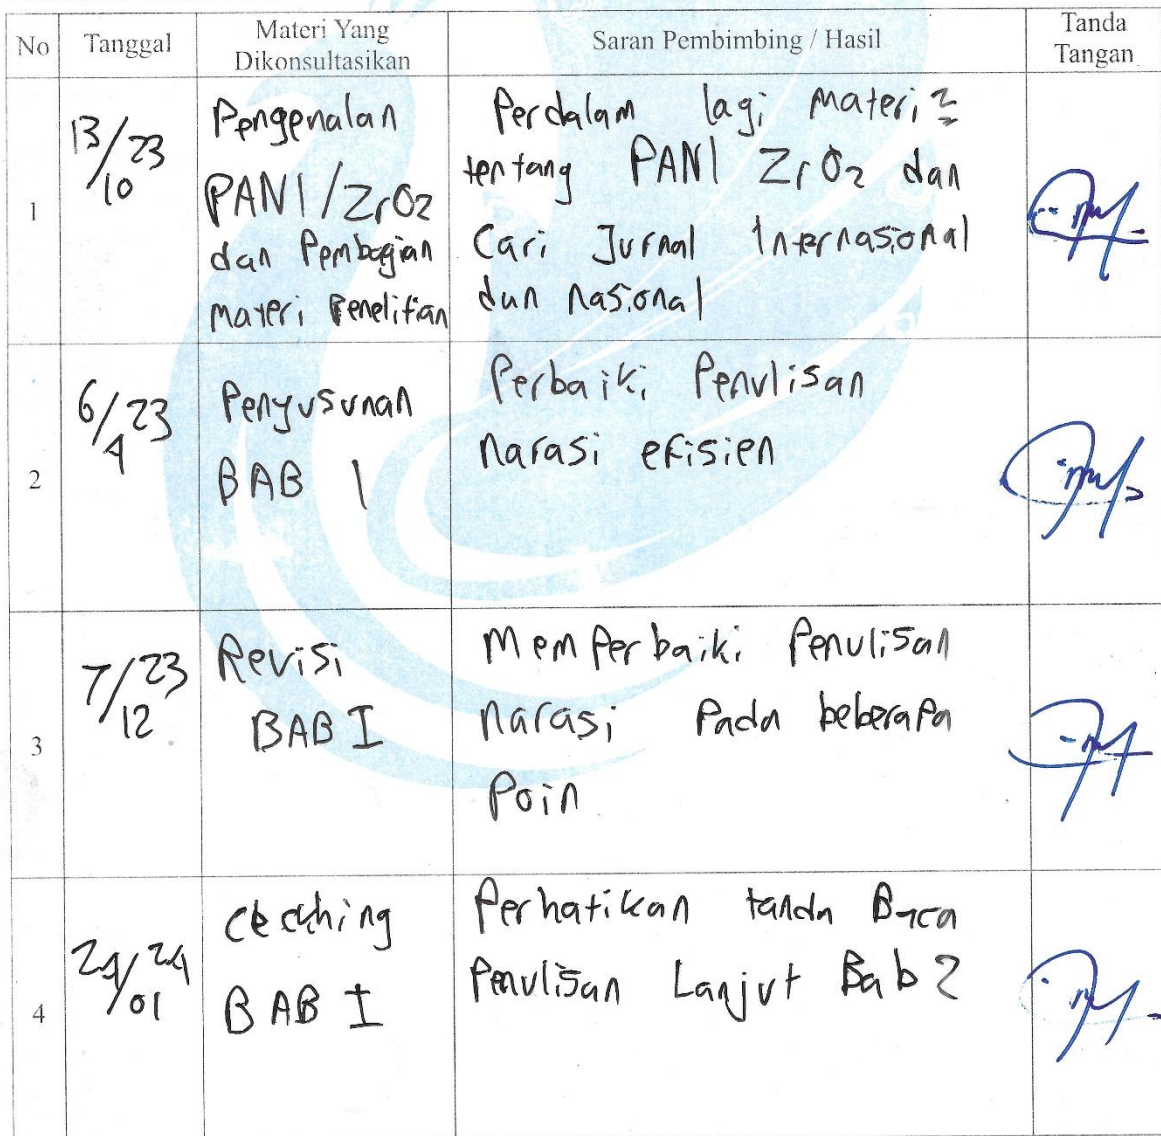 No
Tanggal
Materi Yang
Dikonsultasikan
Saran Pembimbing / Hasil
Tanda
Tangan
1
13/10 23
Pengenalan
PANI/ZrO2
dan Pembagian
materi Penelitian
Perdalam lagi materi2
tentang PANI ZrO2 dan
Cari Jurnal Internasional
dan nasional
2
6/ 23
Penyusunan
BAB 1
Perbaiki Penulisan
narasi efisien
3
7/12 23
Revisi
BAB I
Memperbaiki Penulisan
narasi Pada beberapa
Poin
4
24/01 24
BAB I
Perhatikan tanda Baca
Penulisan Lanjut Bab 2